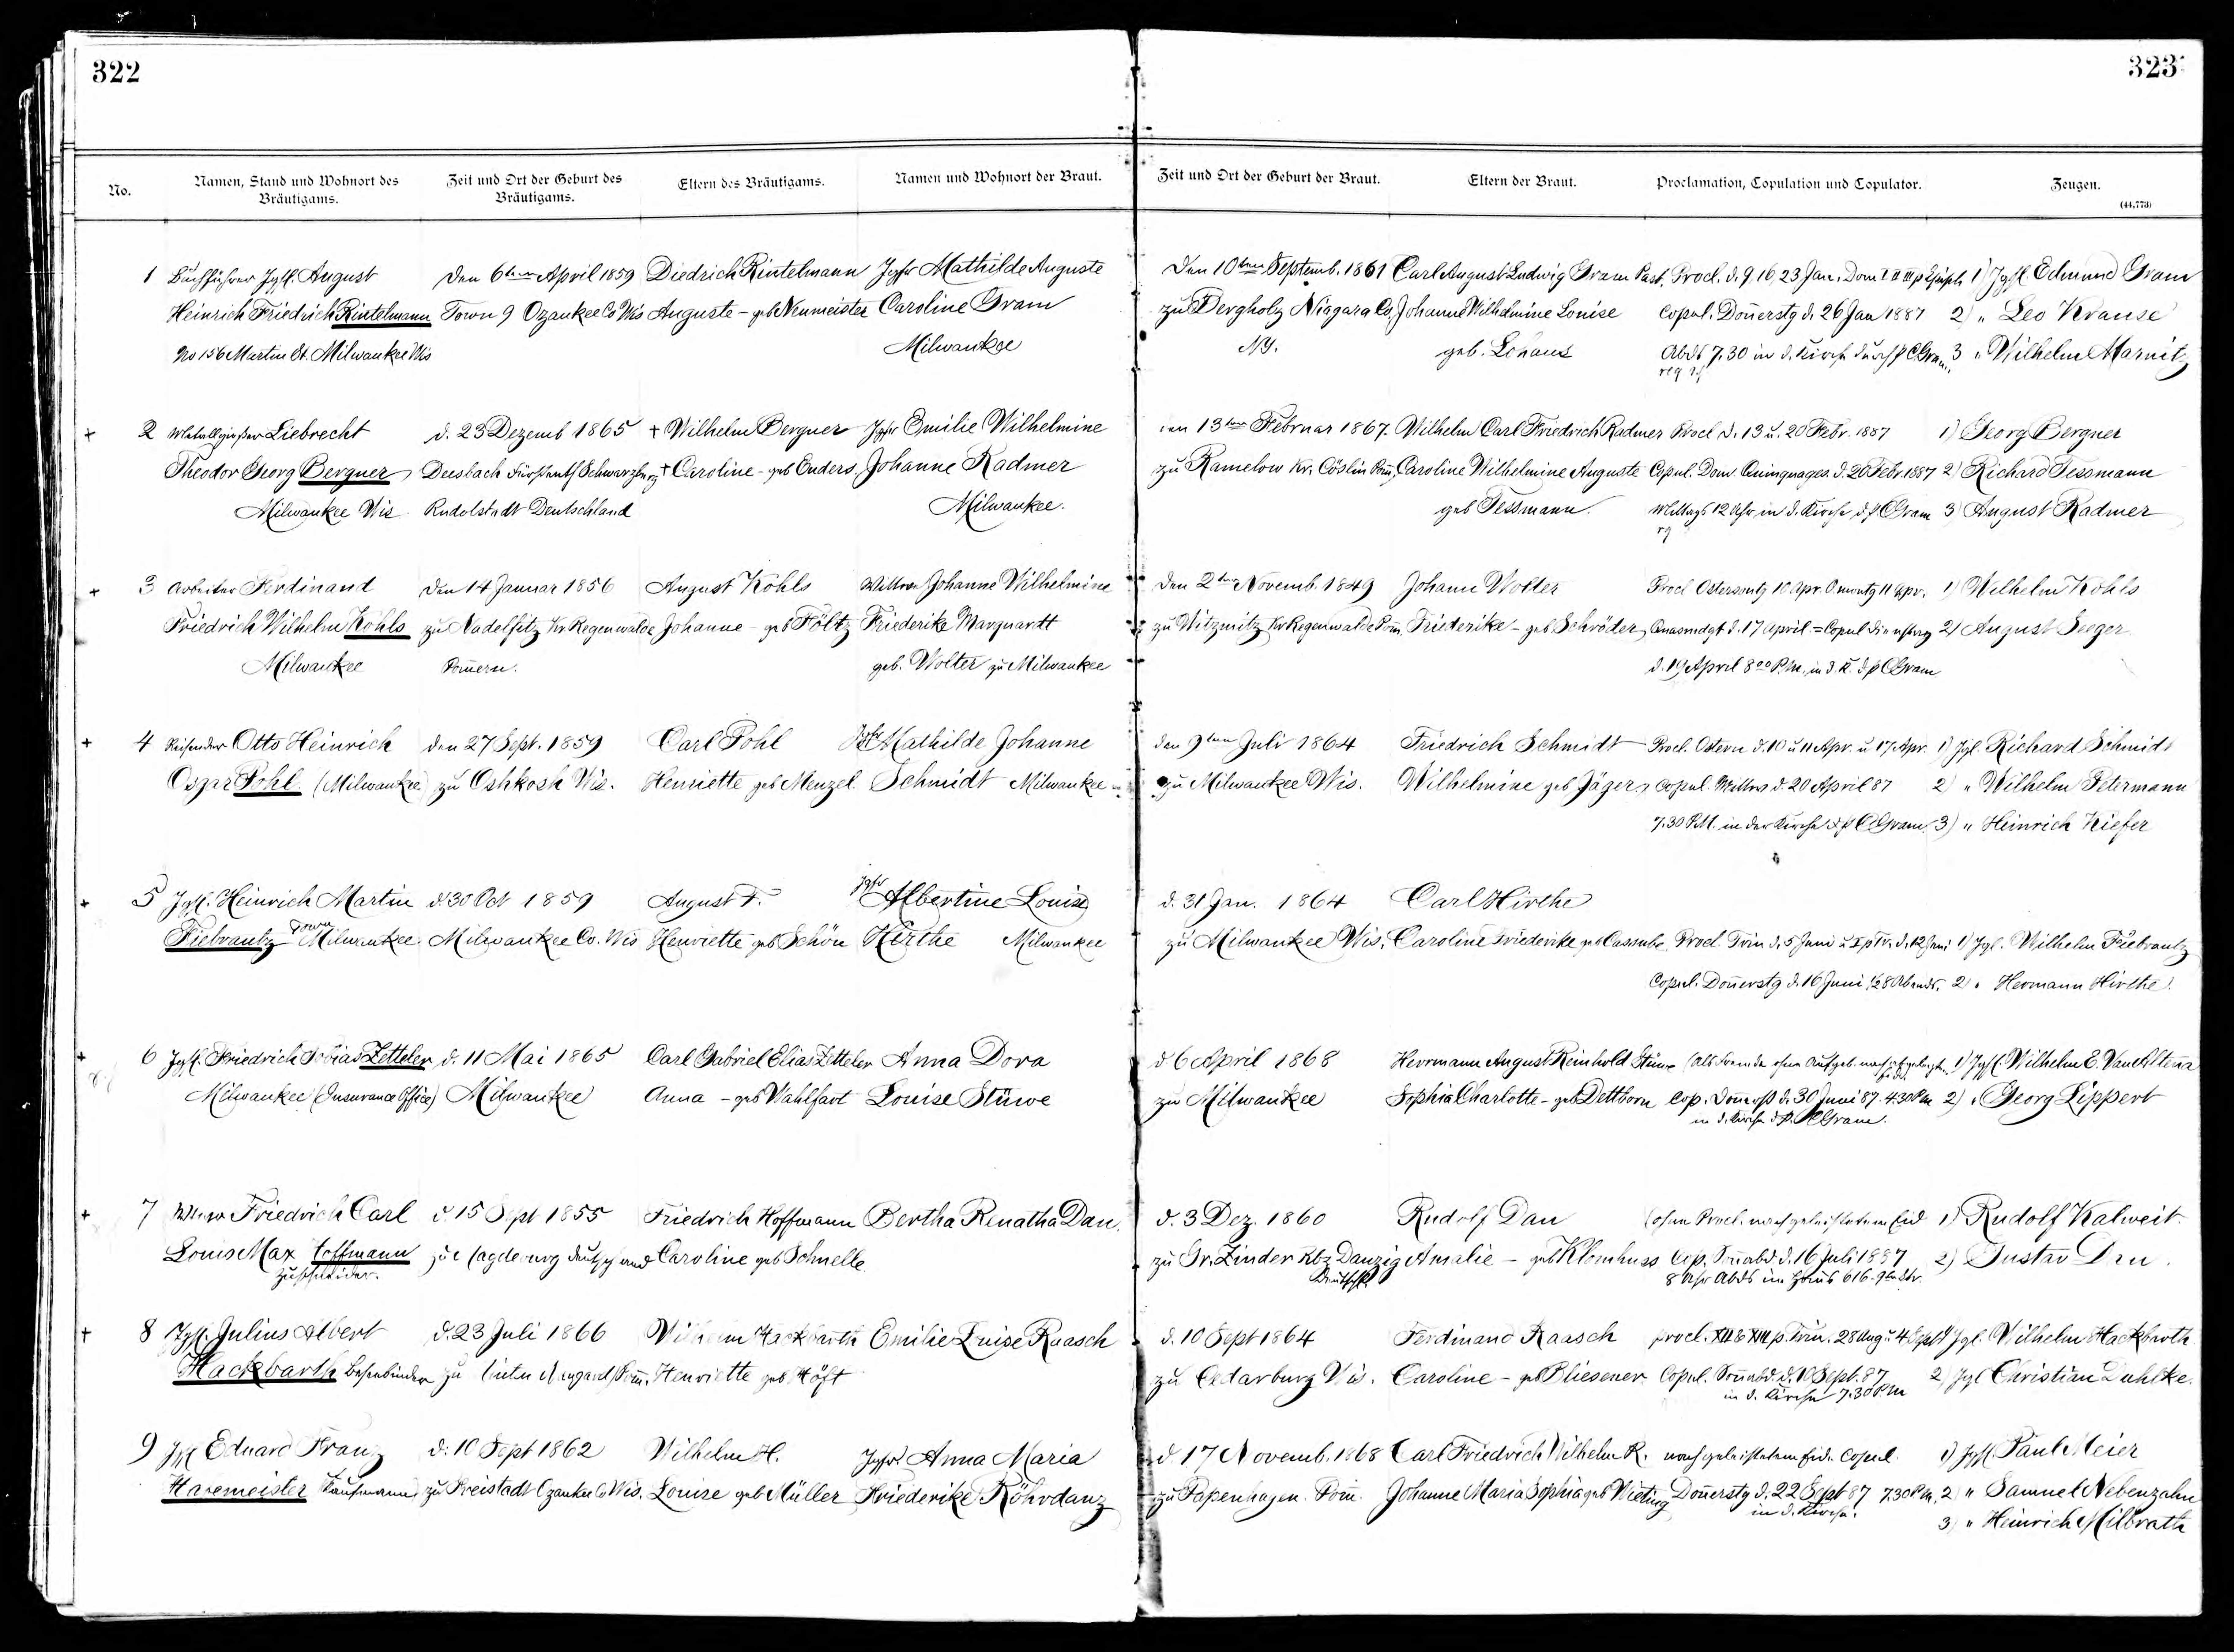 322
323
No.
Namen, Stand und Wohnort des Bräutigams.
Zeit und Ort der Geburt des Bräutigams.
Eltern des Bräutigams.
Namen und Wohnort der Braut.
Zeit und Ort der Geburt der Braut.
Eltern der Braut.
Proclamation, Copulation und Copulator.
Zeugen.
(44,773)
1 Buchführer Jgfl. August
Heinrich Friedrich Rintelmann
No 156 Martin St. Milwaukee Wis
Den 6ten April 1859
Town 9 Ozaukee Co Wis
Diedrich Rintelmann
Auguste - geb Neumeister
Jgfr Mathilde Auguste
Caroline Gram
Milwaukee
Den 10ten Septemb. 1861
zu Bergholz Niagara Co,
NY.
Carl August Ludwig Gram Past.
Johanne Wilhelmine Louise
geb. Lohaus
Procl. d. 9, 16, 23 Jan. Dom I II III p Epiph
Copul. Don̄erstg d. 26 Jan 1887
Abds 7.30 in d. Kirche durch P CGram
1) Jgfl. Edmund Gram
2) " Leo Krause
3 " Wilhelm Marnitz
+ 2 Metallgießer Liebrecht
Theodor Georg Bergner
Milwaukee Wis
d. 23 Dezemb 1865
Deesbach Fürstenth Schwarzburg
Rudolstadt Deutschland
+ Wilhelm Bergner
+ Caroline - geb Enders
Jgfr Emilie Wilhelmine
Johanne Radmer
Milwaukee.
den 13ten Februar 1867.
zu Ramelow Kr. Cöslin Pom̄.
Wilhelm Carl Friedrich Radmer
Caroline Wilhelmine Auguste
geb Tessmann.
Procl d. 13 u. 20 Febr. 1887
Copul. Dom Quinquages. d. 20 Febr. 1887
Mittags 12 Uhr in d. Kirche d. P CGram
1) Georg Bergner
2) Richard Tessmann
3) August Radmer
+ 3 Arbeiter Ferdinand
Friedrich Wilhelm Kohls
Milwaukee
Den 14 Januar 1856
zu Nadelfitz Kr. Regenwalde
Pom̄ern.
August Kohls
Johanne - geb Föltz
Wittwe Johanne Wilhelmine
Friederike Marquardt
geb. Wolter zu Milwaukee
Den 2ten Novemb. 1849
zu Witzmitz Kr Regenwalde Pom̄.
Johann Wolter
Friederike - geb Schröder
Procl Ostersontg 10 Apr. O. montg 11 Apr.
Quasmdgt d. 17 April = Copul Dienstag
d. 19 April 8 00 P.M. in d. K. d. P CGram
1) Wilhelm Kohls
2) August Seeger
+ 4 Reisender Otto Heinrich
Oscar Pohl (Milwaukee)
den 27 Sept. 1859
zu Oshkosh Wis.
Carl Pohl
Henriette geb Menzel.
Jgfr Mathilde Johanne
Schmidt Milwaukee
den 9ten Juli 1864
zu Milwaukee Wis.
Friedrich Schmidt
Wilhelmine geb Jäger
Procl. Ostern d. 10 u 11 Apr. u 17 Apr.
Copul. Mittw d. 20 April 87
7.30 P.M. in der Kirche d. P CGram
1) Jgl. Richard Schmidt
2) " Wilhelm Petermann
3) " Heinrich Kiefer
+ 5 Jgfl. Heinrich Martin
Fiebrantz Town Milwaukee
d. 30 Oct 1859
Milwaukee Co. Wis
August F.
Henriette geb Schön
Jgfr Albertine Louise
Hirthe Milwaukee
d. 31 Jan. 1864
zu Milwaukee Wis.
Carl Hirthe
Caroline Friederike geb Cassube.
Procl Trin d. 5 Juni u I p Tr. d. 12 Juni
Copul. Don̄erstg d. 16 Juni ½8 Abends.
1) Jgl. Wilhelm Fiebrantz
2 " Hermann Hirthe.
+ 6 Jgfl. Friedrich Tobias Zetteler
Milwaukee (Insurance Office)
d. 11 Mai 1865
Milwaukee
Carl Gabriel Elias Zetteler
Anna - geb Wahlfart
Anna Dora
Louise Stüwe
d 6 April 1868
zu Milwaukee
Herrmann August Reinhold Stüwe
Sophia Charlotte - geb Dettborn
(Als Fremde ohne Aufgeb. nach
Cop. Don̄erst d. 30 Juni 87. 4.30 PM
in d. Kirche d. P. CGram.
1) Jgfl. Wilhelm E. Van Altena
2) " Georg Lippert
+ 7 Wtwr Friedrich Carl
Louis Max Hoffmann
Zuschneider.
d. 15 Sept 1855
zu Magdeburg Deutschland
Friedrich Hoffmann
Caroline geb Schnelle.
Bertha Renatha Dau.
d. 3 Dez. 1860
zu Gr. Zünder Rbz Danzig
Deutschl.
Rudolf Dau
Amalie - geb Klomhuss
(ohne Procl. nach geleistetem Eid
Cop. Son̄abd. d. 16 Juli 1887
8 Uhr Abds im Haus 616-9te Str.
1) Rudolf Kalweit.
2) Gustav Dau.
+ 8 Jgfl. Julius Albert
Hackbarth Besenbinder
d. 23 Juli 1866
Wilhelm Hackbarth
Henriette geb Höft
Emilie Luise Raasch
d. 10 Sept 1864
zu Cedarburg Wis.
Ferdinand Raasch
Caroline - geb Bliesener
procl. XII & XIII p. Trin. 28 Aug u 4 Sept
Copul. Son̄abd. d. 10 Sept. 87
in d. Kirche 7.30 PM
1) Jgl. Wilhelm Hackbarth
2) Jgl Christian Dahlke.
9 Jgfl Eduard Franz
Havemeister Kaufmann
d. 10 Sept 1862
zu Freistadt Ozaukee Co Wis.
Wilhelm H.
Louise geb Müller
Jgfr Anna Maria
Friederike Röhrdanz
d. 17 Novemb. 1868
zu Papenhagen. Pom̄.
Carl Friedrich Wilhelm R.
Johanne Maria Sophia geb Vieting
nach geleistetem Eid. Copul.
Don̄erstg d. 22 Sept 87 7.30 P.M.
in d. Kirche.
1) Jgfl. Paul Meier
2 " Samuel Nebenzahn
3) " Heinrich Milbrath